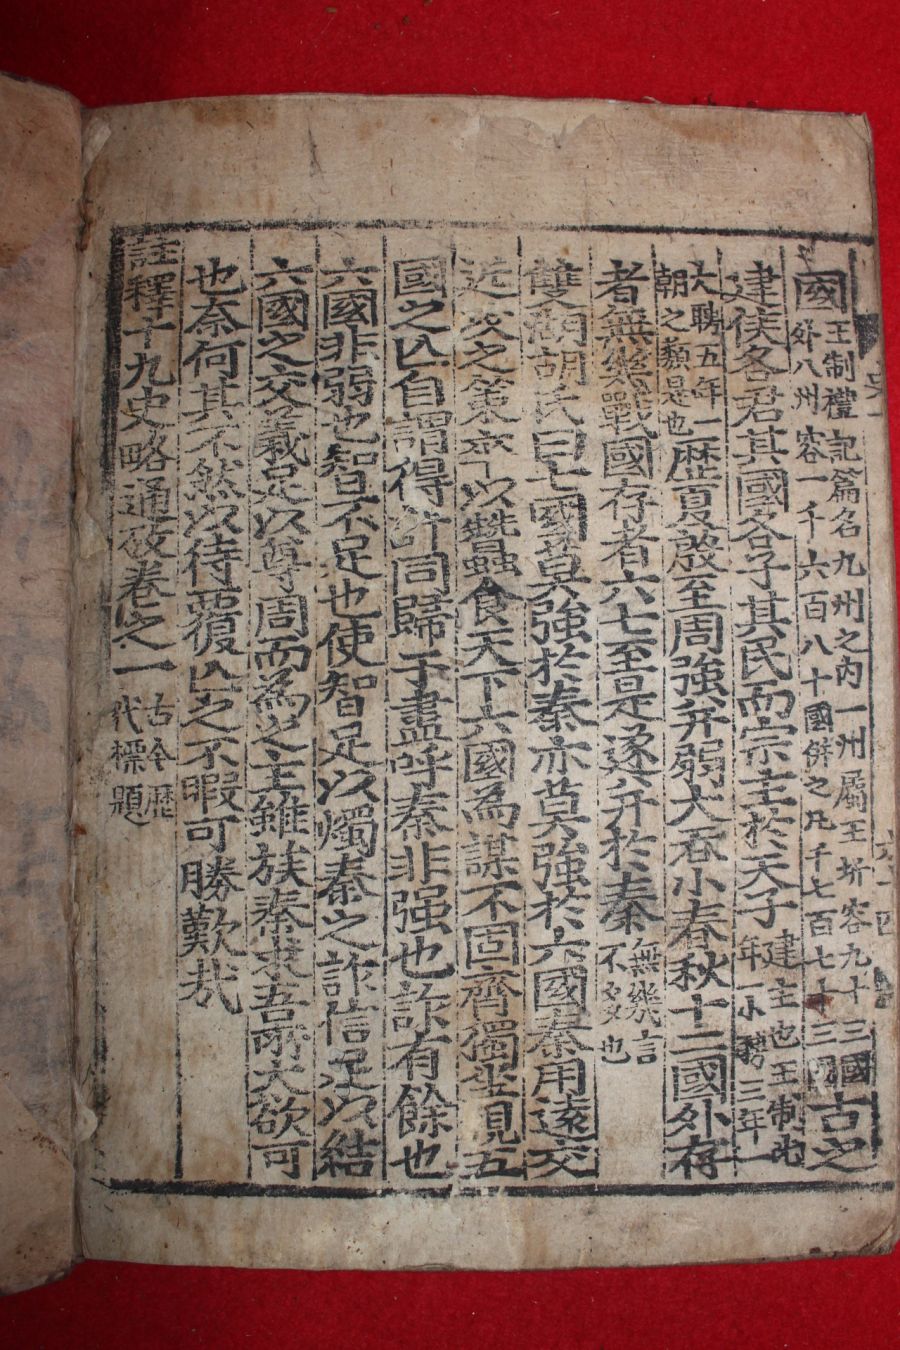 國王制禮記篇名九州之内一州屬王圻容九十三國外八州容一千六百八十國併之凡千七百七十三國古之
建侯各君其國各子其民而宗主於天子建主也王制比年一小聘三年一
大聘五年一朝之類是也歴夏殷至周強弁弱大呑小春秋十二國外存
者無幾戰國存者六七至是遂弁於秦無幾言不多也
雙湖胡氏曰七國莫強於秦亦莫強於六國秦用遠交
近攻之策亦以蠶食天下六國為謀不固齊獨坐視五
國之亡自謂得計同歸于盡呼秦非强也詐有餘也
六國非弱也智不足也使智足以燭秦之詐信足以結
六國之交義足以尊周而為之主雖族秦求吾所大欲可
也奈何其不然以待覆亡之不暇可勝歎哉
註釋十九史略通攷卷之一古今歴代標題